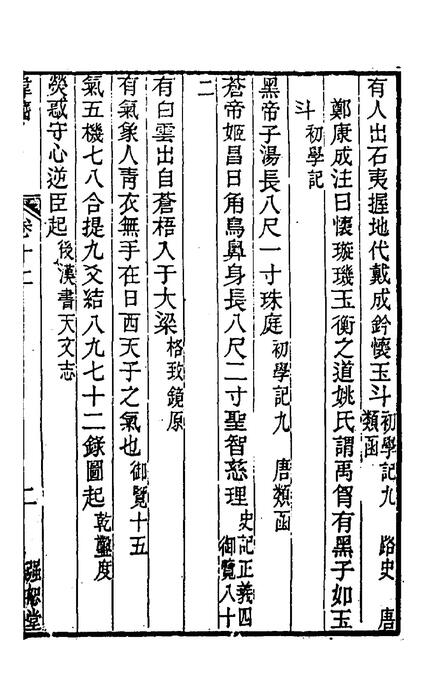 有人出石夷掘地代戴成鈐懷玉斗初學記九　路史　唐類函
鄭康成注曰懷璇璣玉衡之道姚氏謂禹胷有黑子如玉
斗初學記
黑帝子湯長八尺一寸珠庭初學記九　唐類函
蒼帝姬昌日角鳥鼻身長八尺二寸聖智慈理史記正義四　御覽八十
二
有白雲出自蒼梧入于大梁格致鏡原
有氣象人青衣無手在日西天子之氣也御覽十五
氣五機七八合提九爻結八九七十二錄圖起乾鑿度
熒惑守心逆臣起後漢書天文志
卷十二
二